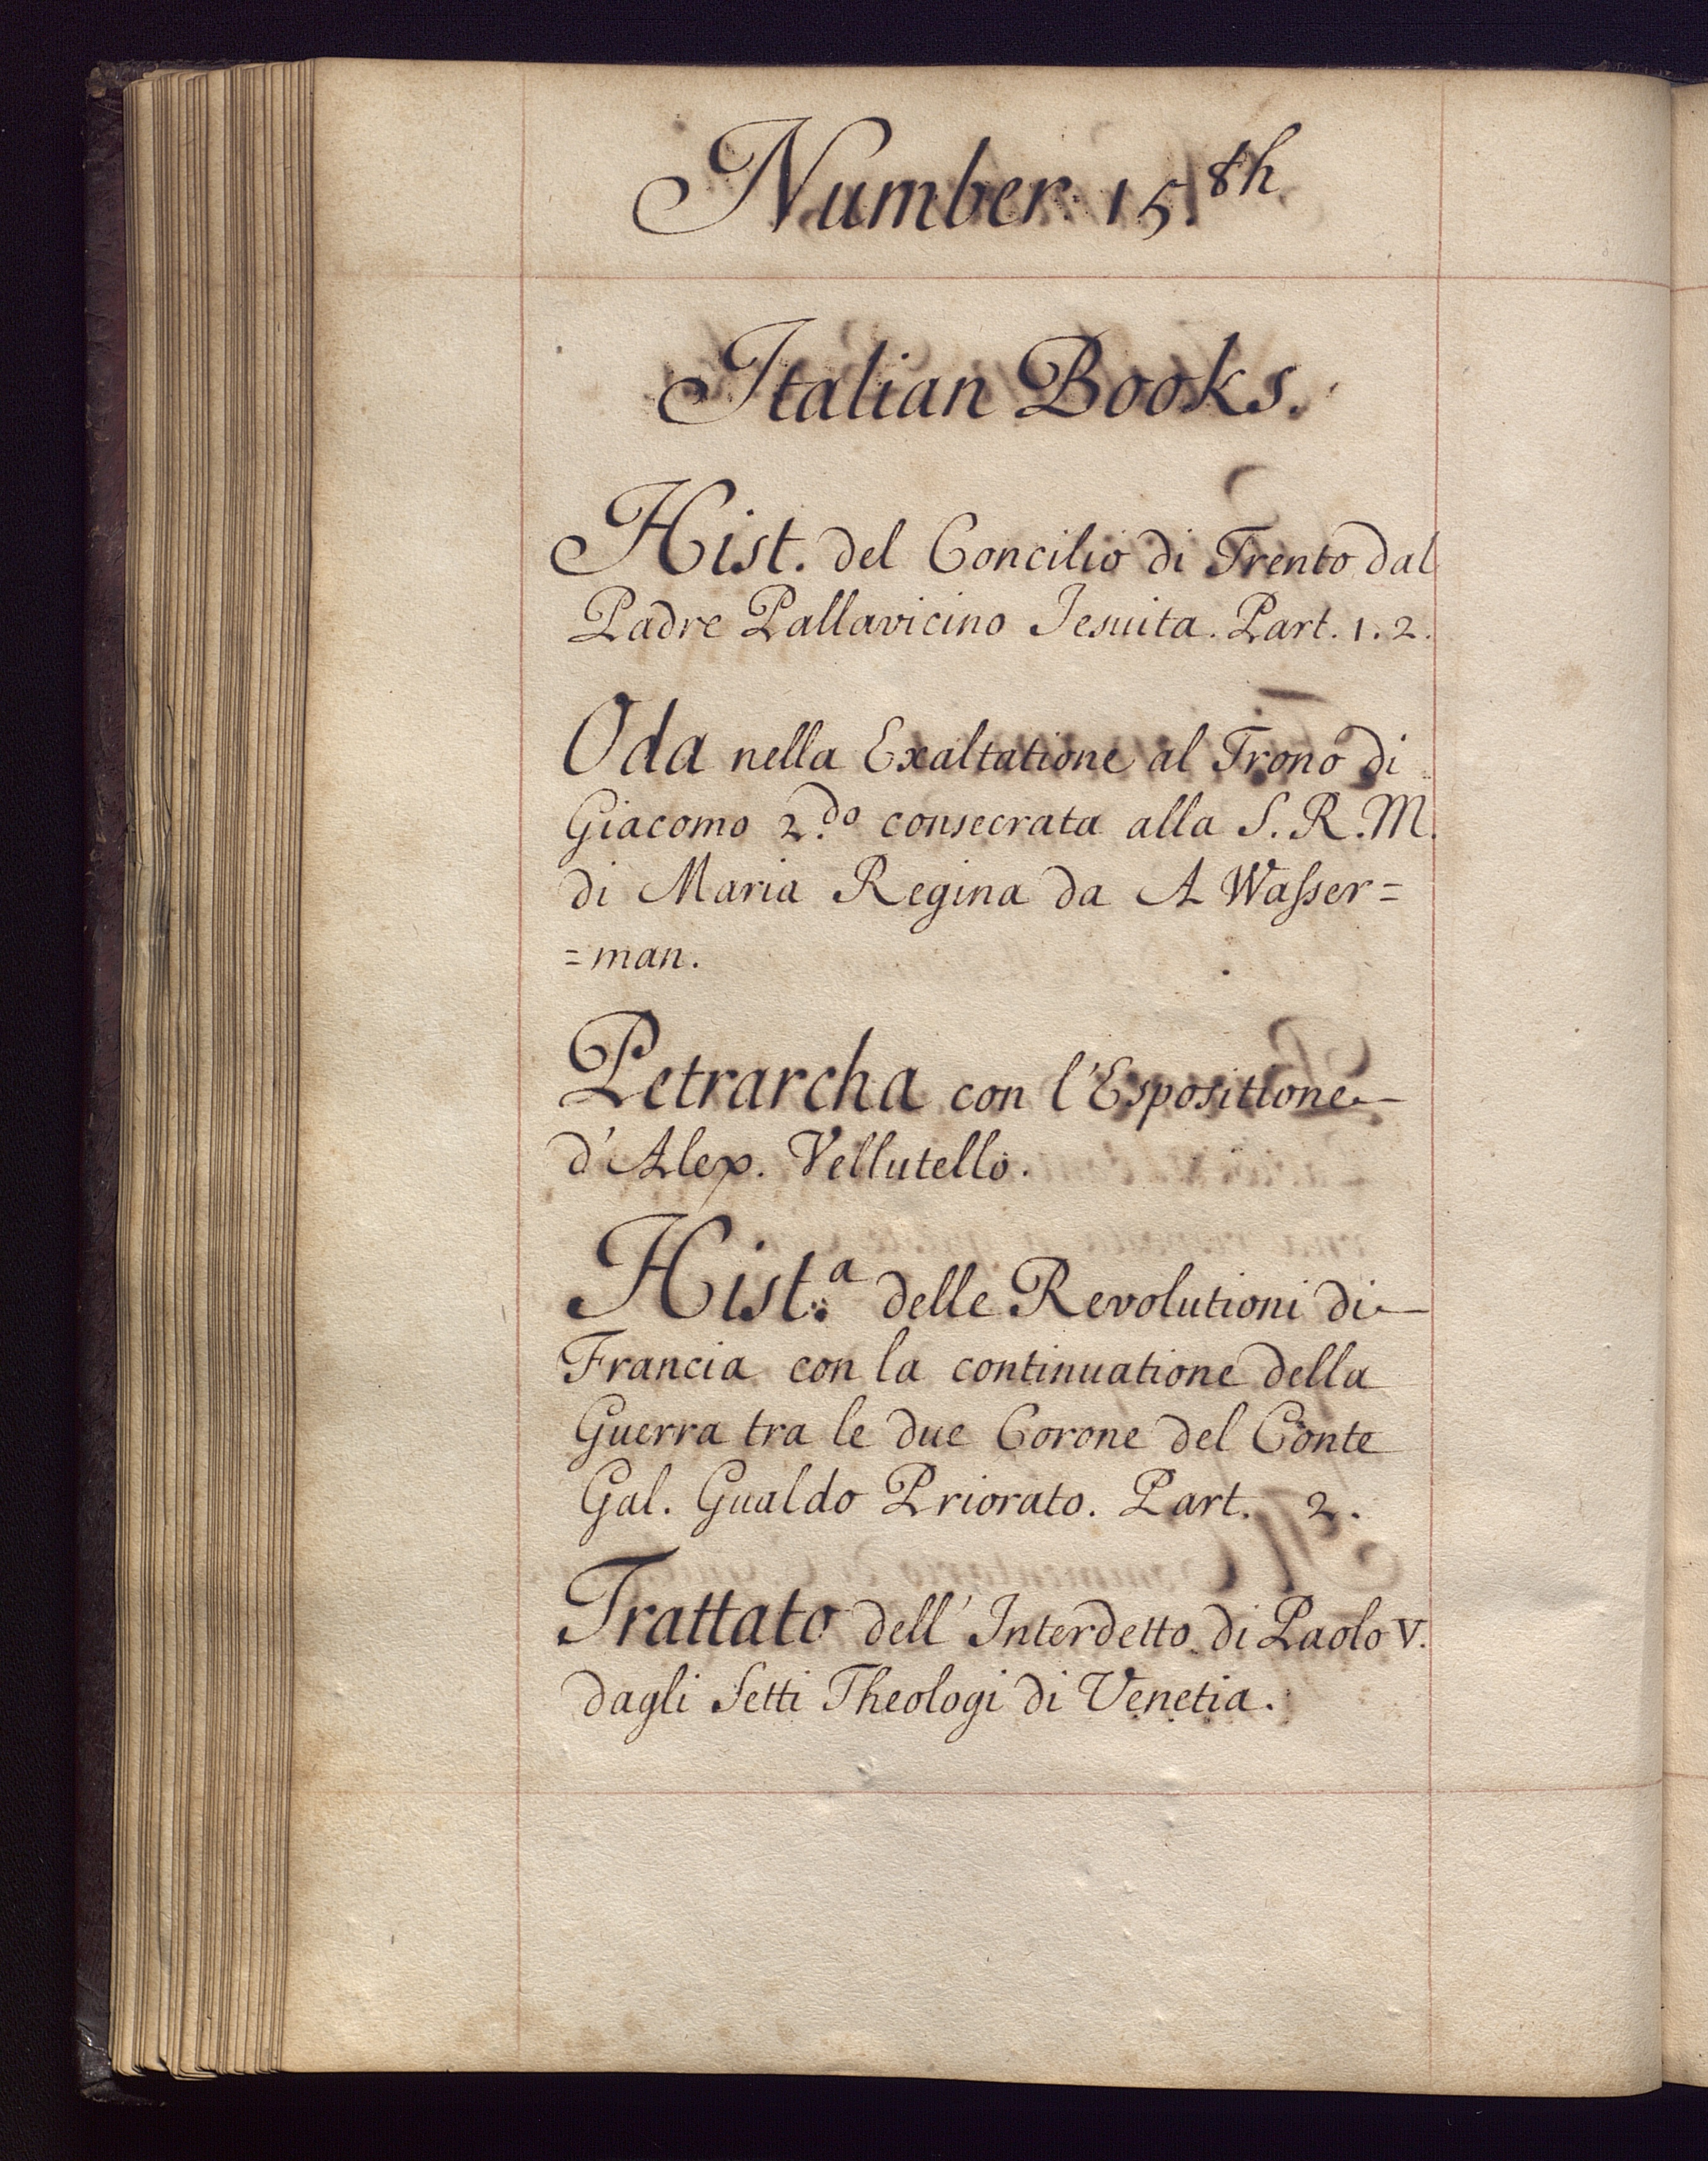 Number 15.th
Italian Books.
Hist. del Concilio di Trento dal
Padre Pallavicino Jesuita. Part. 1. 2.
Oda nella Exaltatione al Trono di
Giacomo 2.do consecrata alla S. R. M.
di Maria Regina da A Waſser=
=man.
Petrarcha con l'Espositione
d'Alex. Vellutello.
Hist.a delle Revolutioni di
Francia con la continuatione della
Guerra tra le due Corone del Conte
Gal. Gualdo Priorato. Part. 2.
Trattato dell' Interdetto di Paolo V.
dagli Setti Theologi di Venetia.